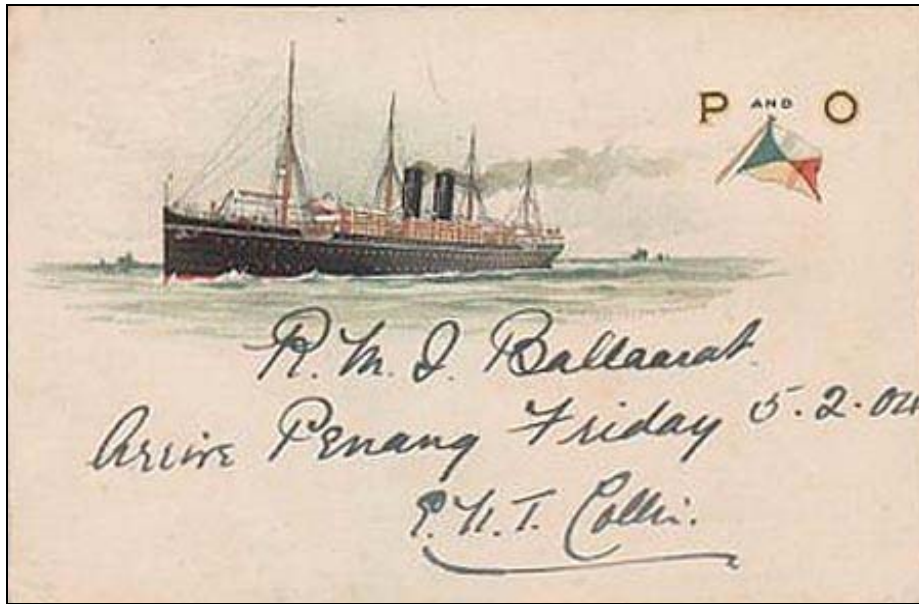 P AND O
R. M. S. Ballaarat.
Arrive Penang Friday 5.2.04